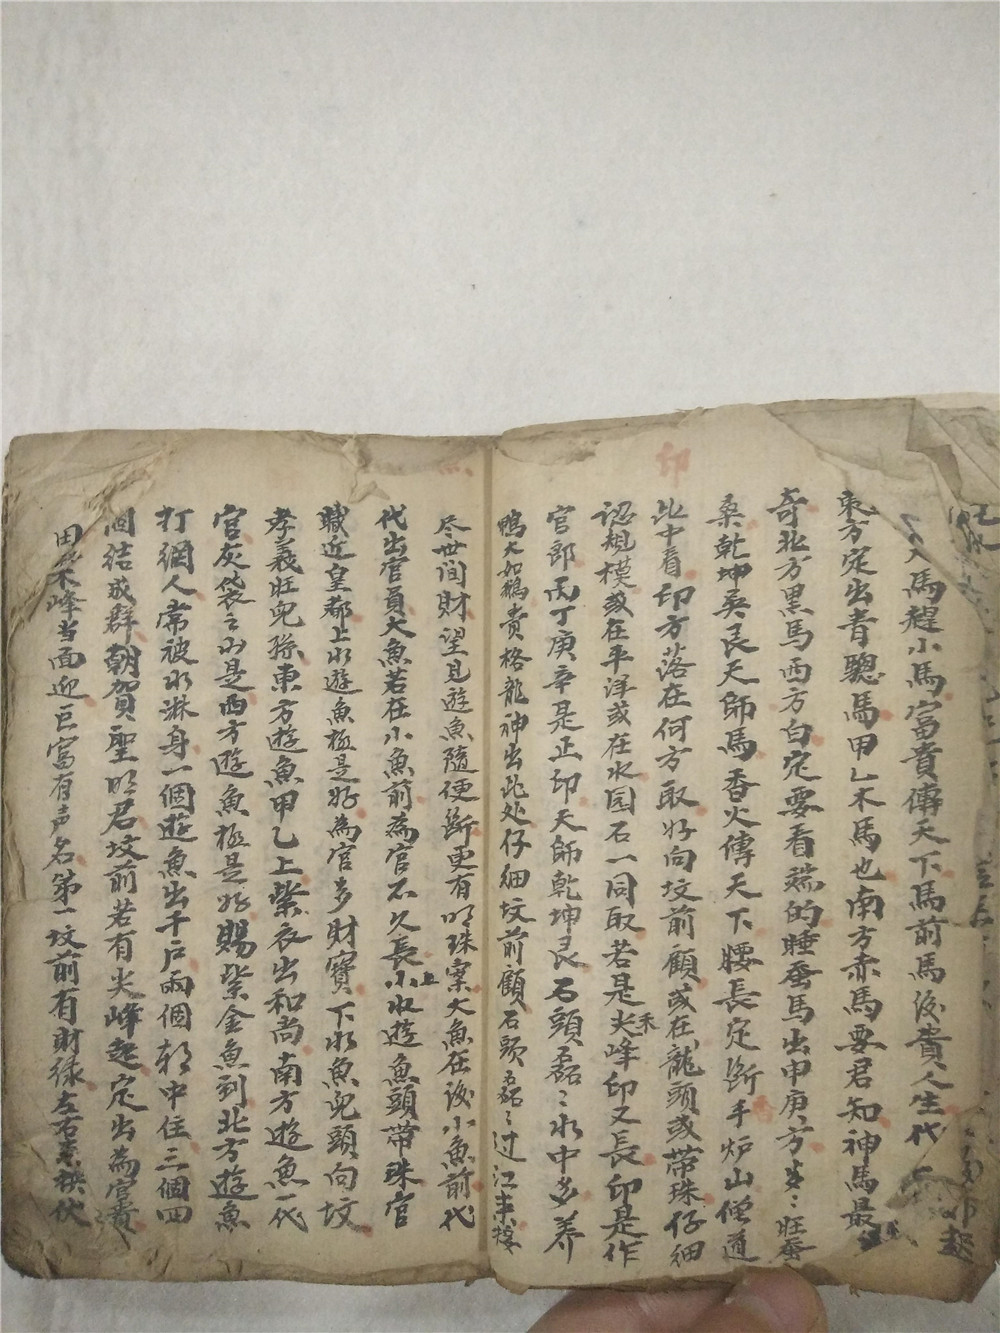 大馬趕小馬富貴傳天下馬前馬後貴人生代
東方定出青驄馬甲乙木馬也南方赤馬要君知神馬最
奇北方黑馬西方白定要看端的睡蚕馬出申庚方旺蚕
桑乾坤巽艮天師馬香火傳天下腰長定斷手炉山僧道
印
此中看印方落在何方取好向坟前顧或在龍頭或帶珠仔細
認規模或在平洋或在水园石一同取若是尖峰印又長印是作
官郎丙丁庚辛是正印天師乾坤艮石頭磊〻水中多养
鴨大如鵝貴格龍神出此处仔細坟前顧石頭磊〻过江来
魚
尽世间財望見遊魚隨便斷更有明珠案大魚在後小魚前代
代出官員大魚若在小魚前為官不久長小水遊魚頭帶珠官
上
職近皇都上水遊魚極是好為官多財寶下水魚兒頭向坟
孝義旺兒孫東方遊魚甲乙上紫衣出和尚南方遊魚一代
官灰袋之小是西方遊魚極是好賜紫金魚到北方遊魚
打網人常被水淋身一個遊魚出千戶兩個郡中住三個四
個結成群朝賀聖明君坟前若有尖峰起定出為官貴
田木峰当面迎巨富有声名第一坟前有財祿左右